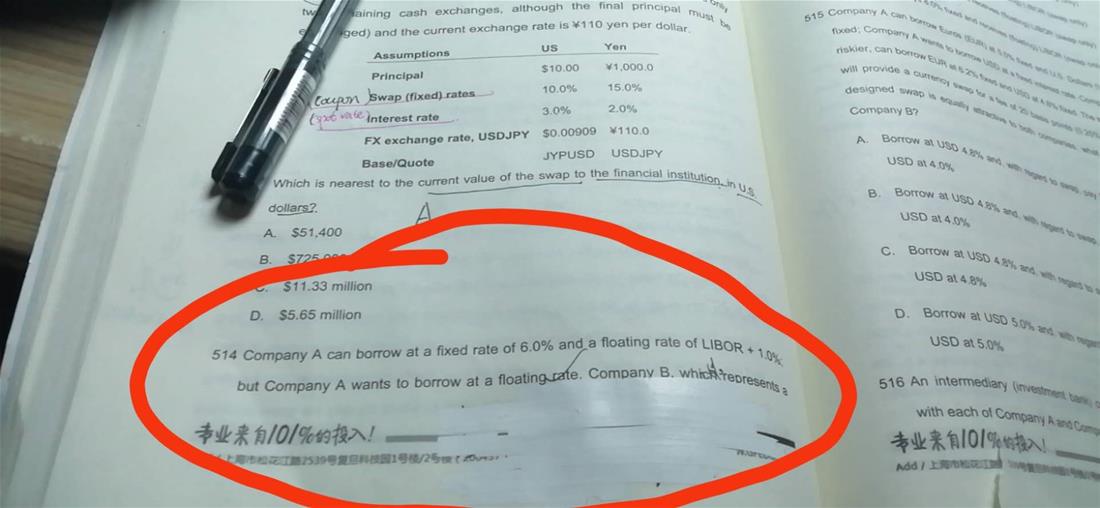 aining cash exchanges, although the final principal must be
ged) and the current exchange rate is ¥110 yen per dollar.
Assumptions US Yen
Principal $10.00 ¥1,000.0
(coupon) Swap (fixed) rates 10.0% 15.0%
(spot rate) Interest rate 3.0% 2.0%
FX exchange rate, USDJPY $0.00909 ¥110.0
Base/Quote JYPUSD USDJPY
Which is nearest to the current value of the swap to the financial institution, in U.S.
dollars?
A
A. $51,400
B. $725,
C. $11.33 million
D. $5.65 million
514 Company A can borrow at a fixed rate of 6.0% and a floating rate of LIBOR + 1.0%,
but Company A wants to borrow at a floating rate. Company B, which represents a
专业来自101%的投入!
上海市松花江路2539号复旦科技园1号楼/2号楼
515 Company A can borrow Euros (EUR) at
fixed; Company A wants to borrow USD at a fixed
riskier, can borrow EUR at 6.2% fixed and USD at
will provide a currency swap for a fee of 20 basis points
designed swap is equally attractive to both companies, what
Company B?
A. Borrow at USD 4.8% and, with regard to swap, pay
USD at 4.0%
B. Borrow at USD 4.8% and, with regard to swap
USD at 4.0%
C. Borrow at USD 4.8% and, with regard to
USD at 4.8%
D. Borrow at USD 5.0% and, with regard
USD at 5.0%
516 An intermediary (investment bank)
with each of Company A and Comp
专业来自101%的投入!
Add / 上海市松花江路